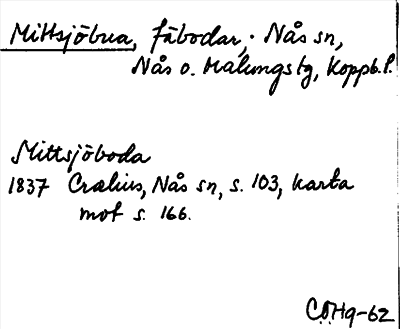 Mittsjöbua, fäbodar, Nås sn,
Nås o. Malungs tg, Koppb. l.
Mittsjöboda
1837 Crælius, Nås sn, s. 103, karta
mot s. 166.
CÖHg-62